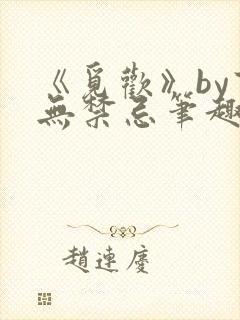 《覓歡》by
無禁忌筆趣
趙連慶